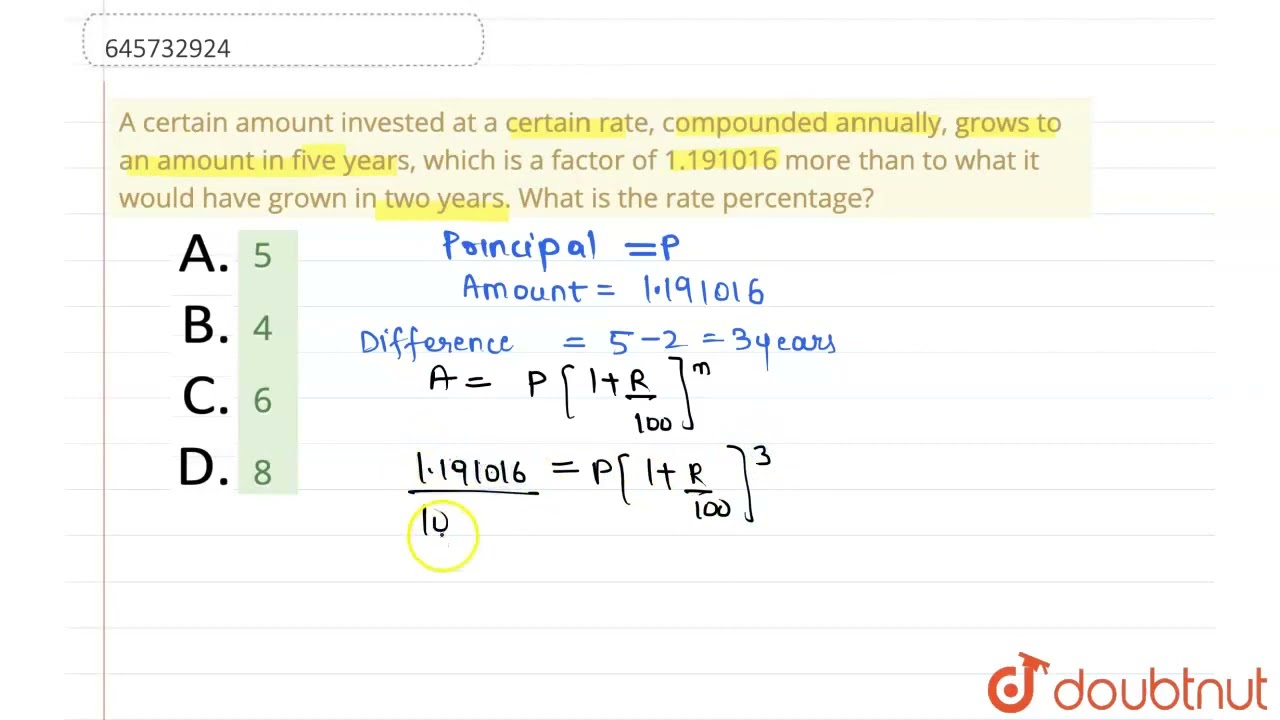 645732924
A certain amount invested at a certain rate, compounded annually, grows to
an amount in five years, which is a factor of 1.191016 more than to what it
would have grown in two years. What is the rate percentage?
A. 5
B. 4
C. 6
D. 8
Principal = P
Amount = 1.191016
Difference = 5-2 = 3years
A = P[1+R/100]^n
1.191016/10 = P[1+R/100]^3
doubtnut